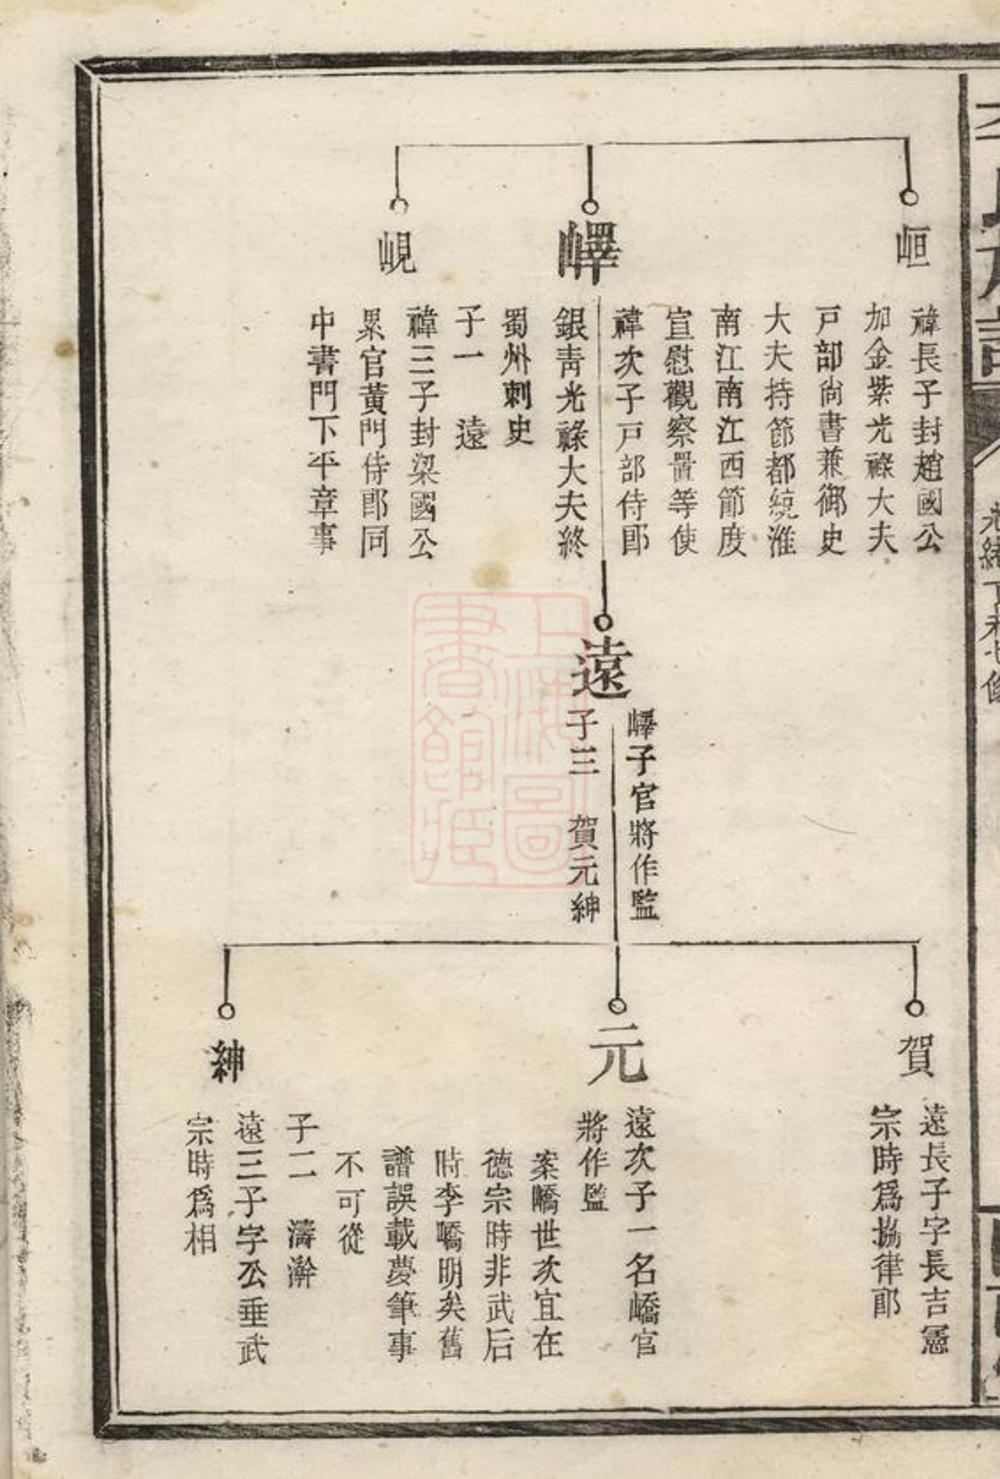 峘
禕長子封趙國公
加金紫光祿大夫
戸部尚書兼御史
大夫持節都統淮
南江南江西節度
宣慰觀察置等使
嶧
禕次子戸部侍郎
銀青光祿大夫終
蜀州刺史
子一　遠
峴
禕三子封梁國公
累官黃門侍郎同
中書門下平章事
遠
嶧子官將作監
子三　賀元紳
賀
遠長子字長吉憲
宗時爲協律郎
元
遠次子一名嶠官
將作監
案嶠世次宜在
德宗時非武后
時李嶠明矣舊
譜誤載夢筆事
不可從
子二　濤瀚
紳
遠三子字公垂武
宗時爲相
上海圖
書館藏